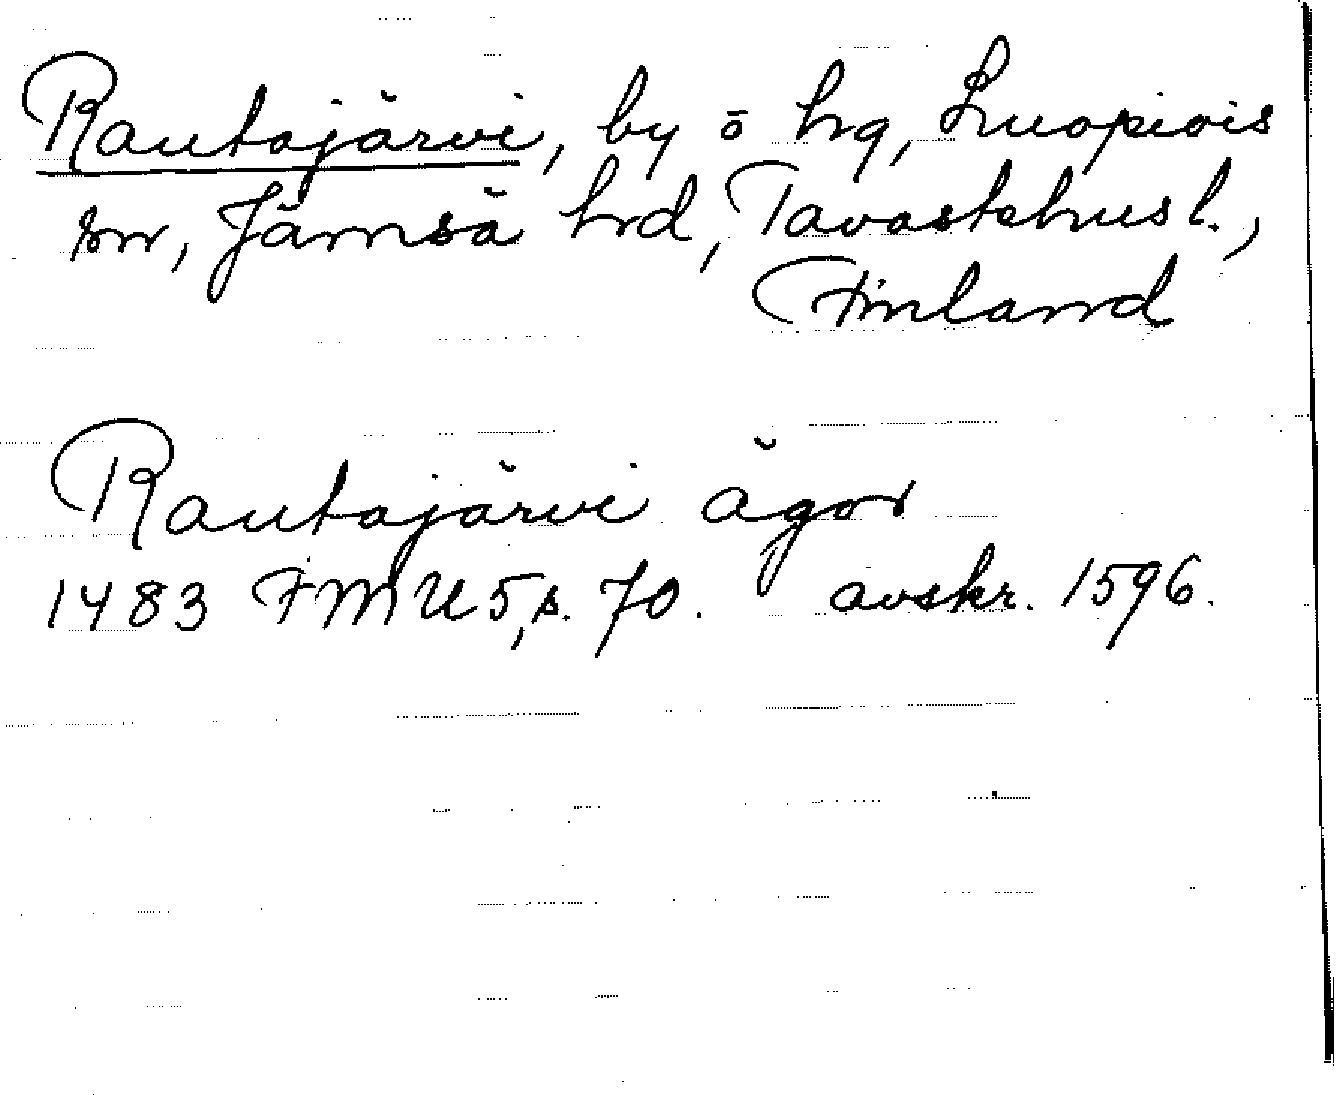 Rautajärvi, by o hg, Luopiois
sn, Jämsä hrd, Tavastehus l.,
Finland
Rautajärvi ägor
1483 FMU 5, s. 70. avskr. 1596.